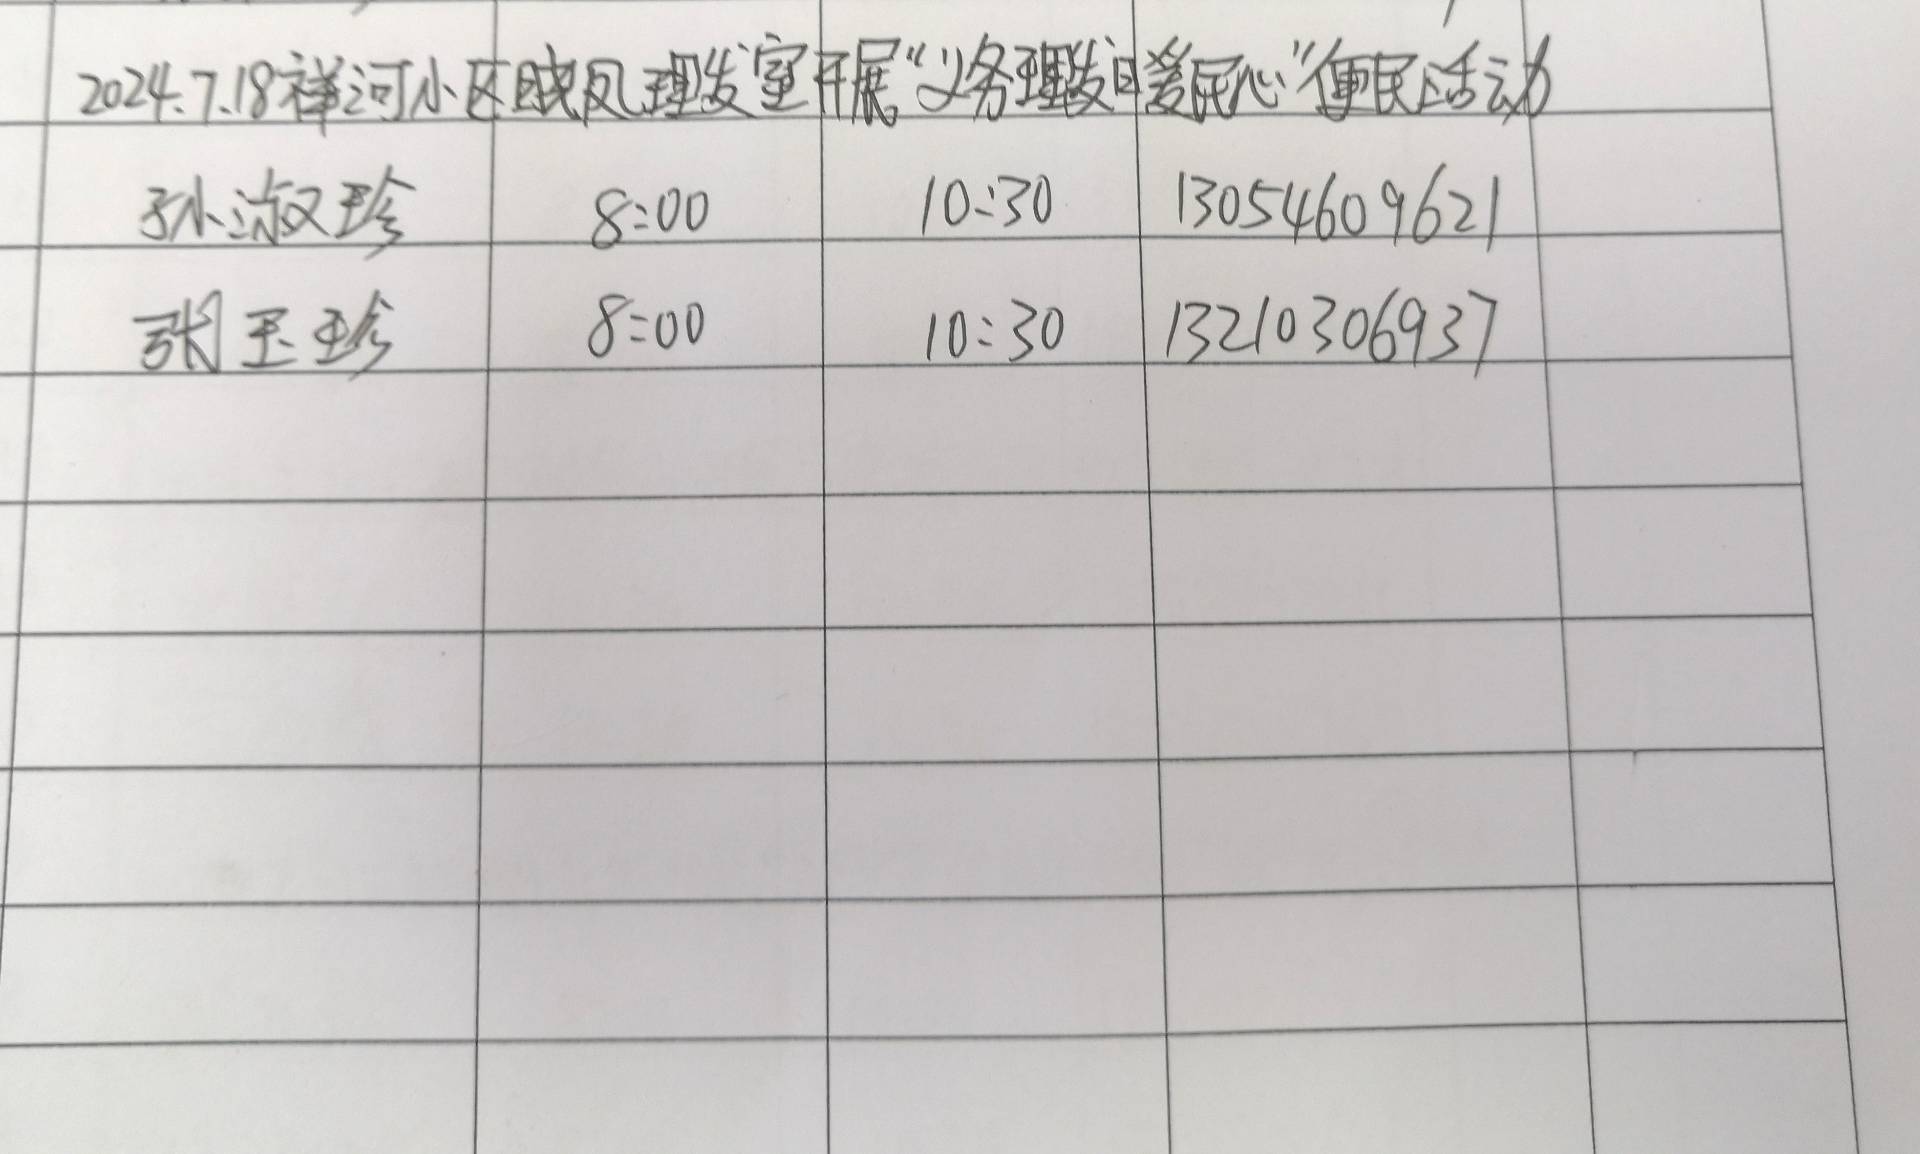 2024.7.18祥河小区晓凤理发室开展“义务理发日爱民心”便民活动
孙淑珍 8:00 10:30 13054609621
张玉珍 8:00 10:30 13210306937